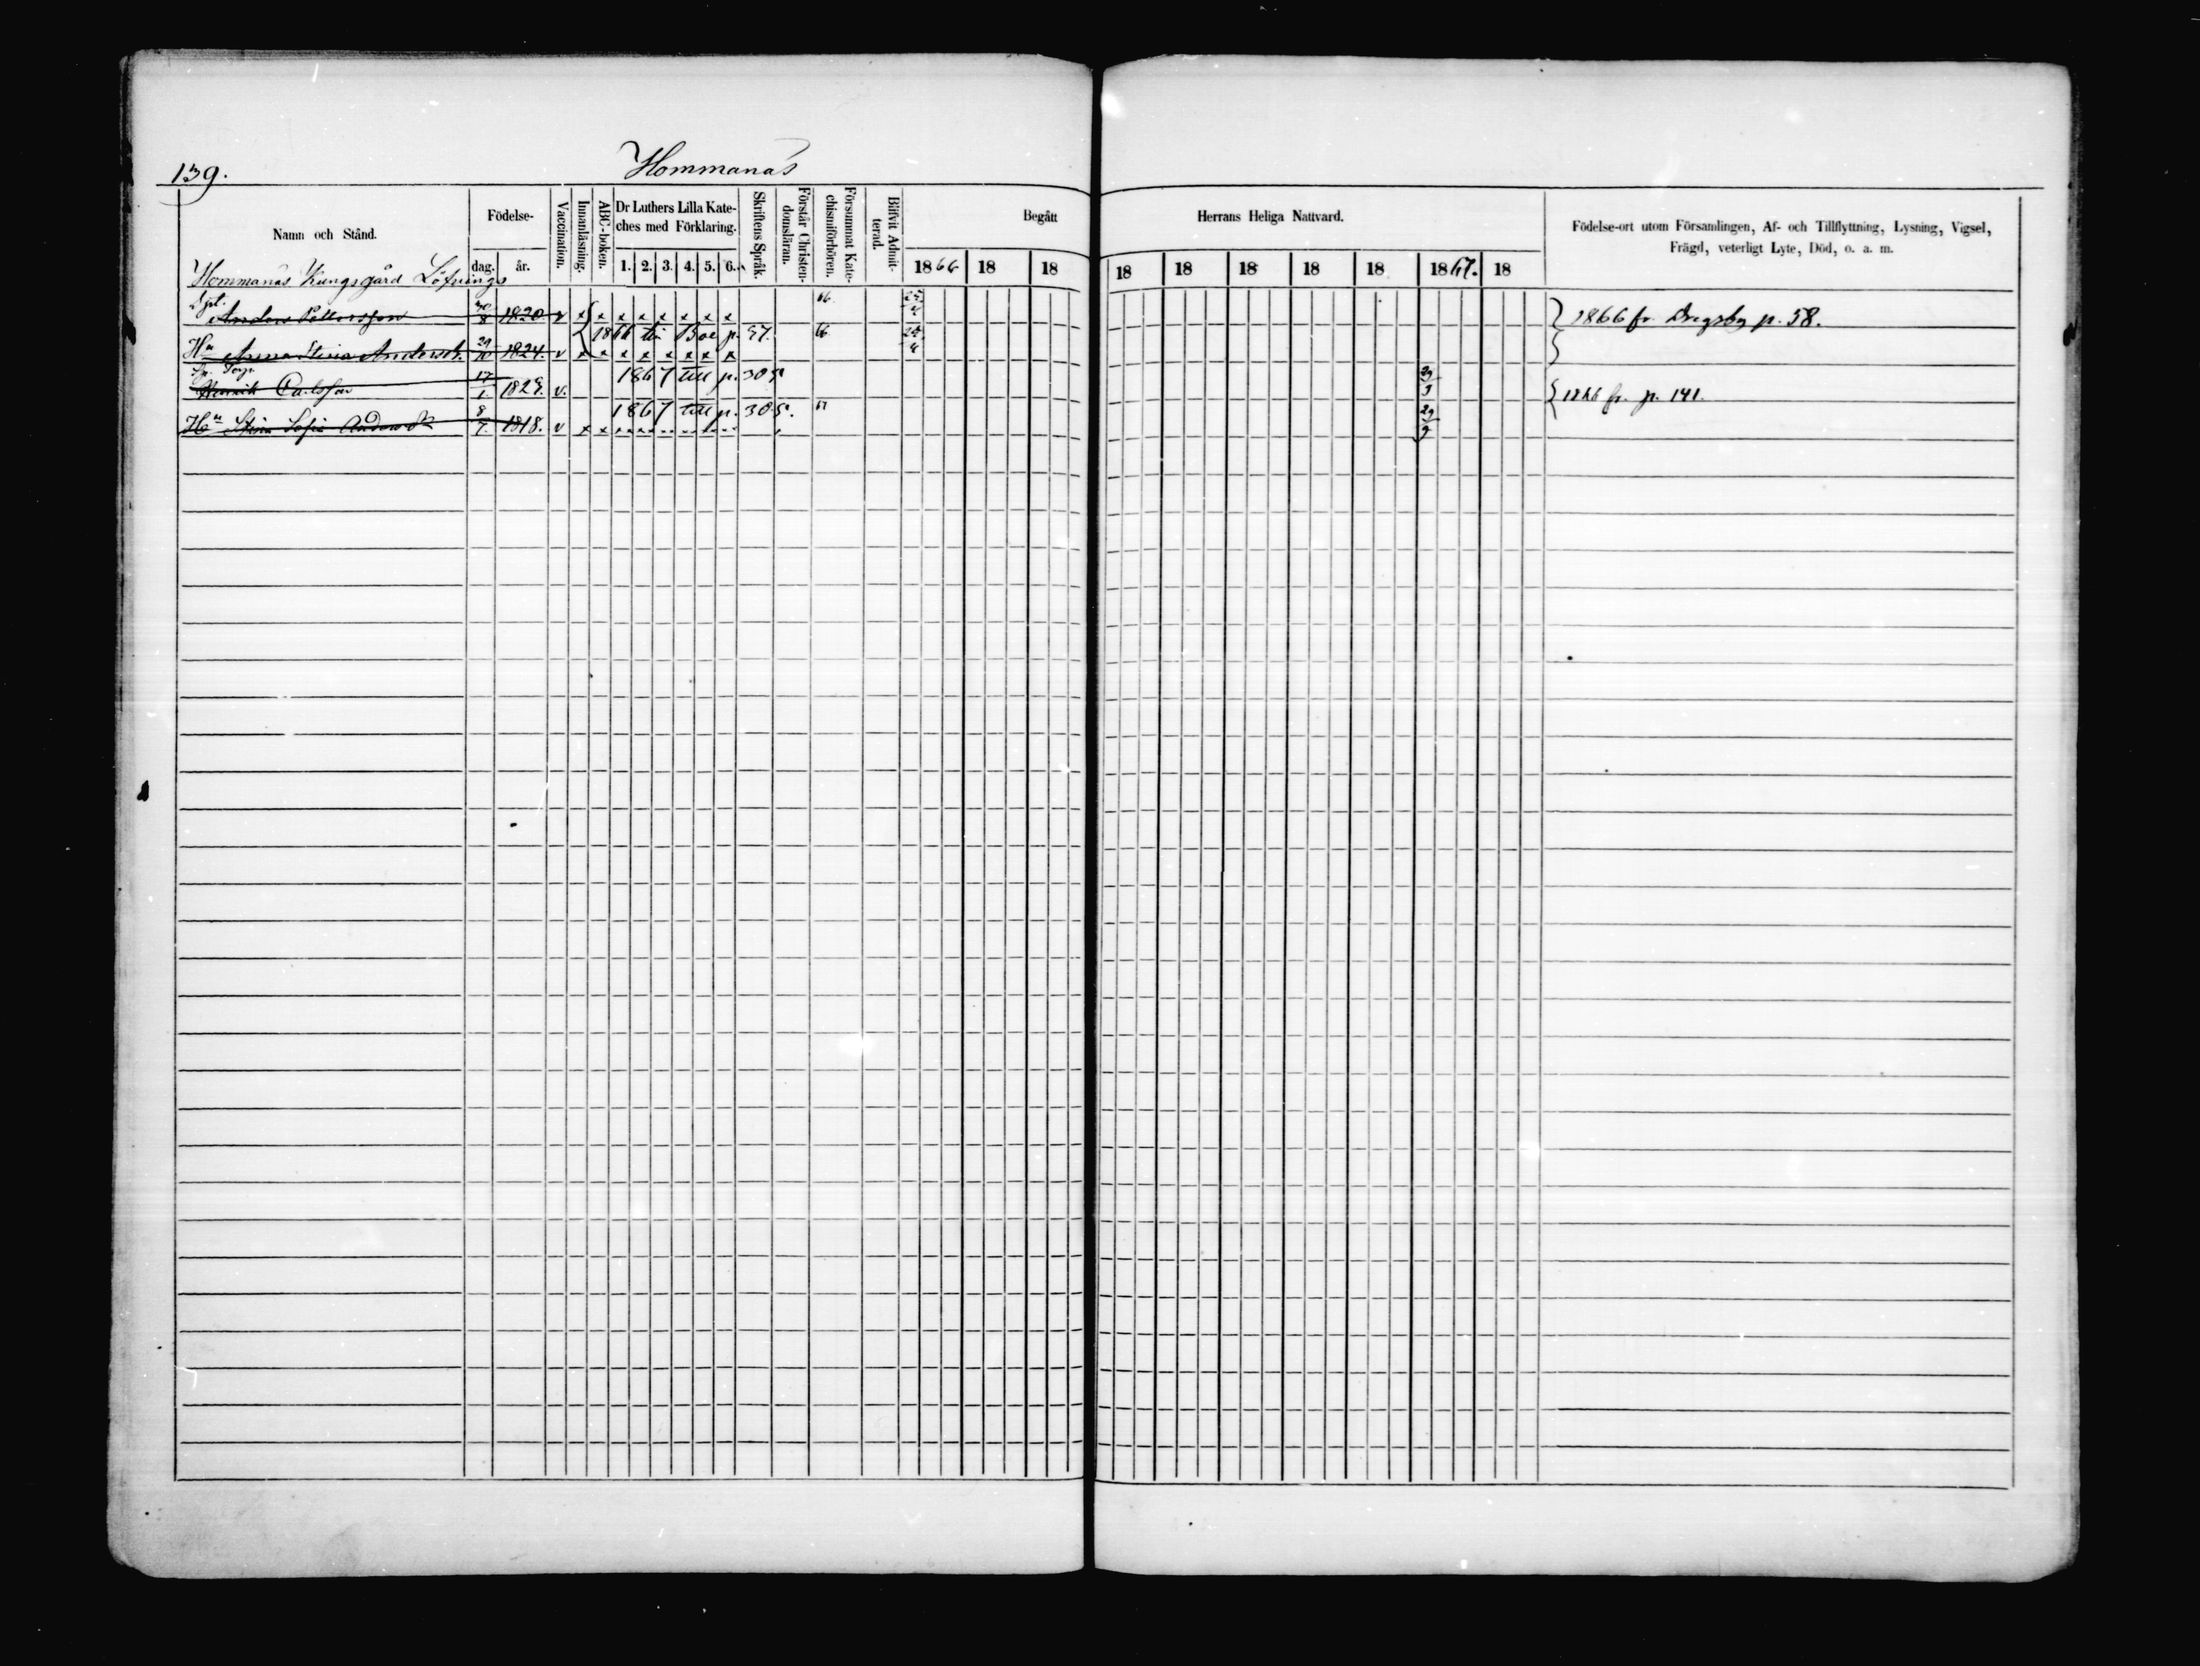 139.
Hommanäs
Namn och Stånd.
Födelse-
dag.
år.
Vaccination.
Innanläsning.
ABC-boken.
Dr Luthers Lilla Kate-
ches med Förklaring.
1. 2. 3. 4. 5. 6.
Skriftens Språk.
Förstår Christen-
domsläran.
Försummat Kate-
chismiförhören.
Blifvit Admit-
terad.
Begått
1866 18 18
Herrans Heliga Nattvard.
18 18 18 18 18 1867. 18
Födelse-ort utom Församlingen, Af- och Tillflyttning, Lysning, Vigsel,
Frägd, veterligt Lyte, Död, o. a. m.
Hommanäs Kungsgård Löfvings
Anders Pettersson 30/8 1820 v x x x x x x x x 66. 1866 fr. Drägsby p. 58.
Hu Anna Stina Andersd. 29/10 1824. v x x x x x x x x 1866 till Boe p. 57. 66
Henrik Carlsson 17/1 1829. v. 1867 till p. 305. 29/9 1866 fr. p. 141.
Hu Stina Sofia Andersd. 8/7. 1818. v x x 1867 till p. 305. 67 29/9